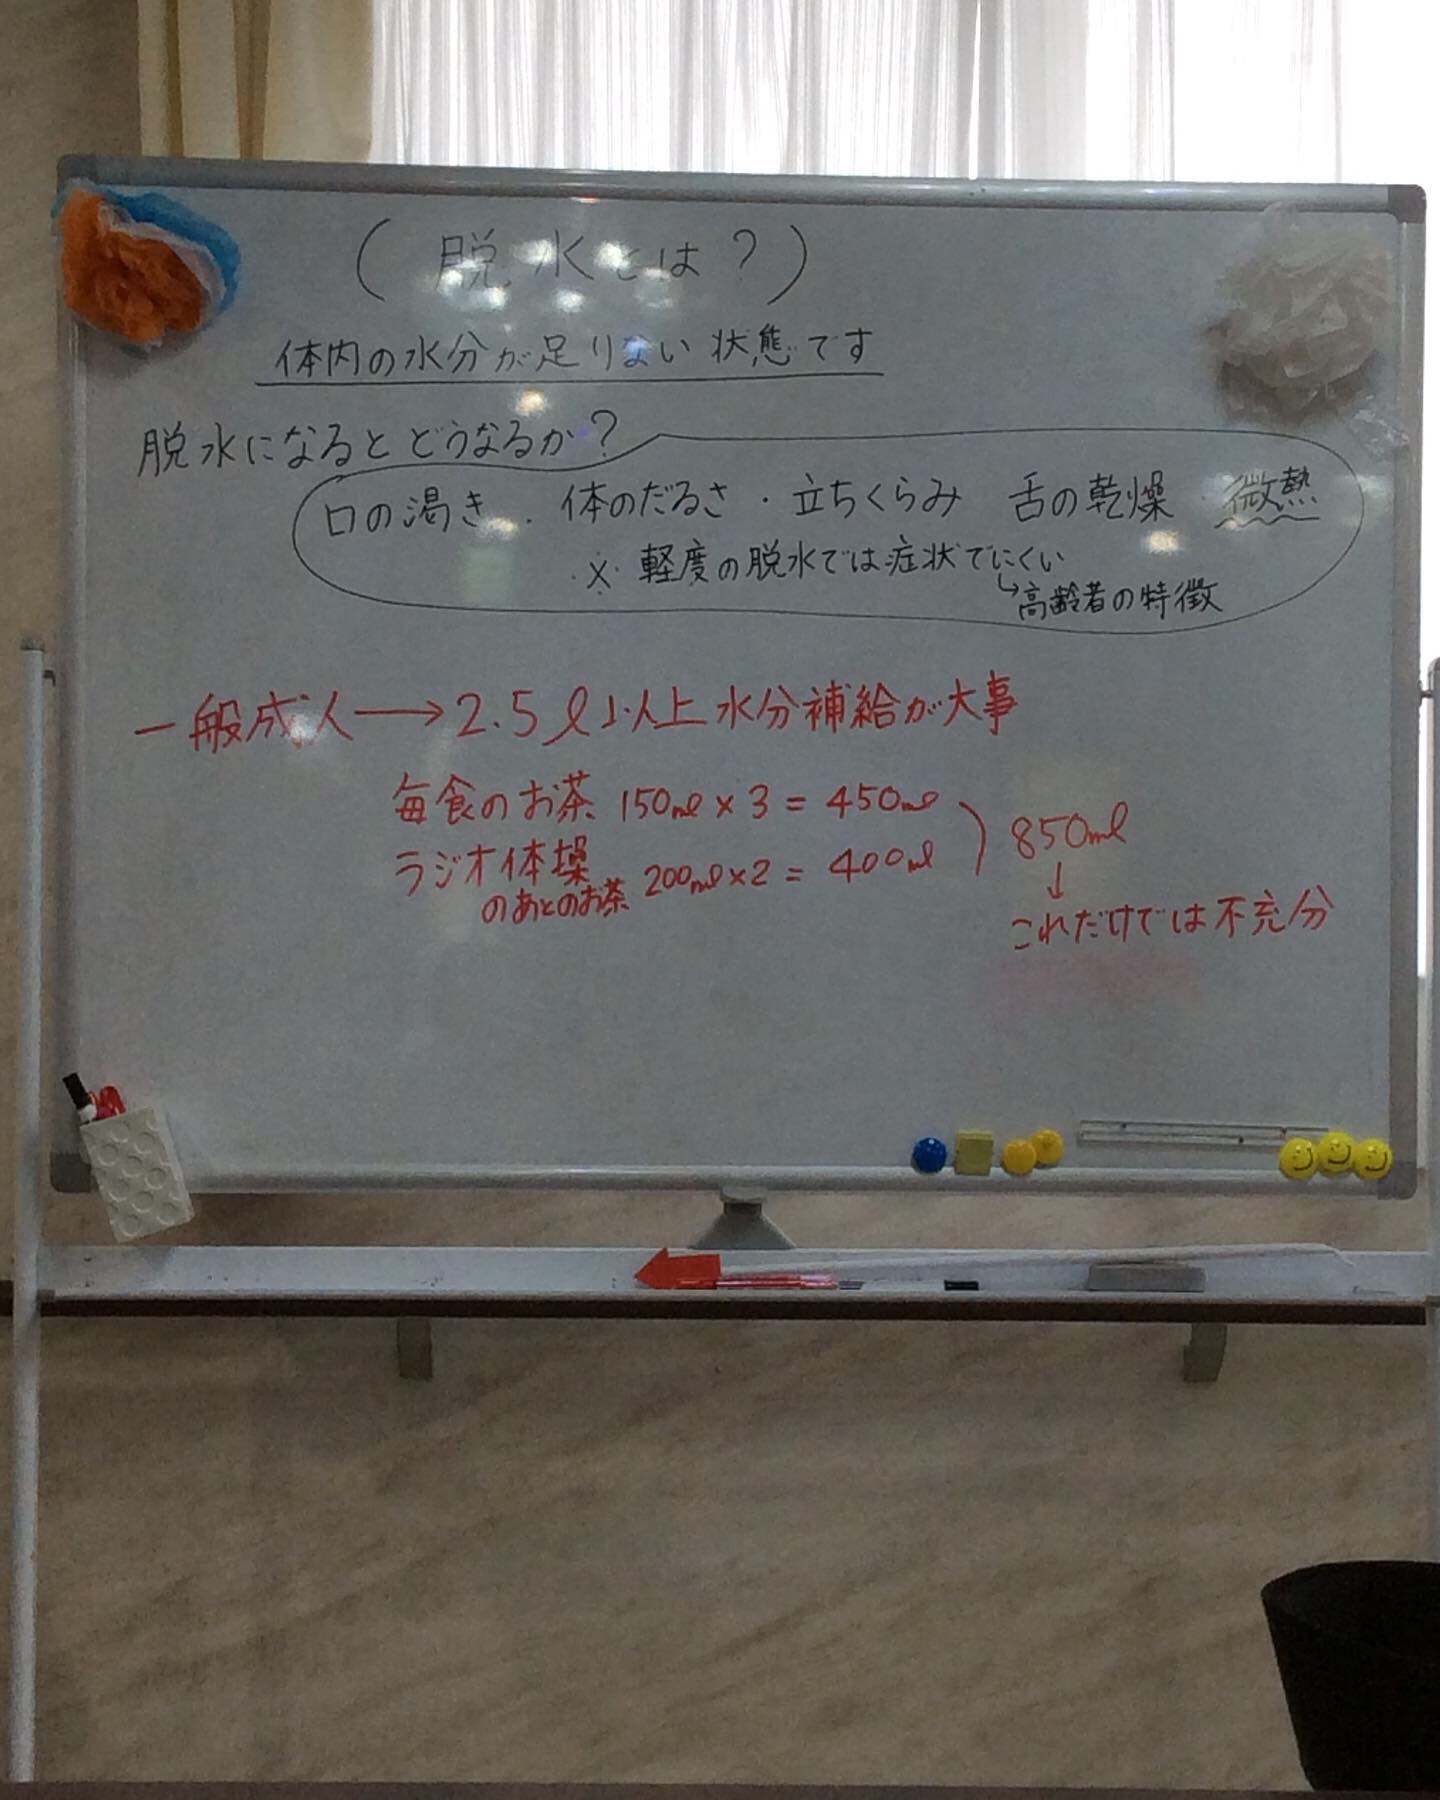 (脱水とは？)
体内の水分が足りない状態です
脱水になるとどうなるか？
口の渇き・体のだるさ・立ちくらみ 舌の乾燥・微熱
※軽度の脱水では症状でにくい
↳高齢者の特徴
一般成人→2.5ℓ以上水分補給が大事
毎食のお茶 150ml×3=450ml
ラジオ体操
のあとのお茶 200ml×2=400ml
850ml
↓
これだけでは不充分